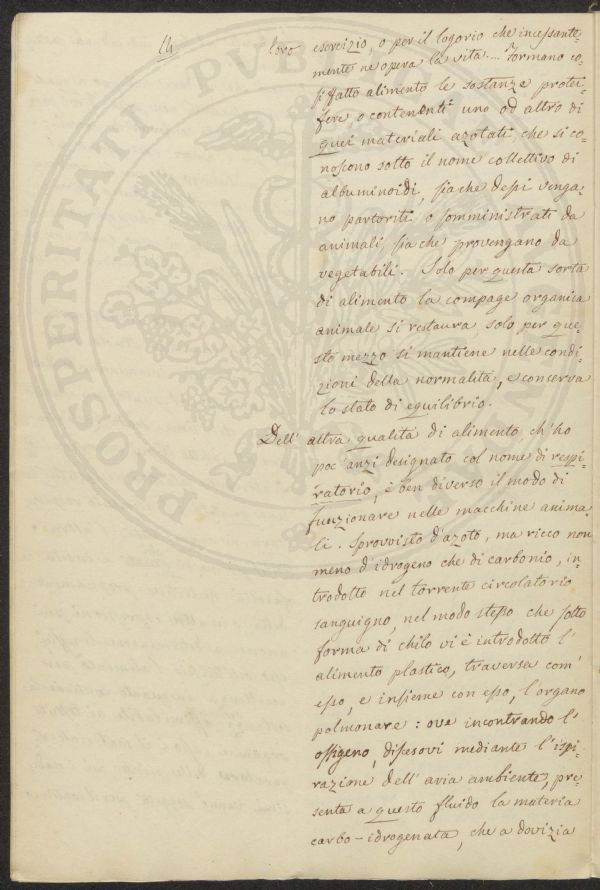 14
loro esercizio, o per il logorio che incessante-
mente ne opera la vita.... Formano co-
sì fatto alimento le sostanze protei-
fere, o contenenti uno od altro di
quei materiali azotati, che si co-
noscono sotto il nome collettivo di
albuminoidi, sia che dessi venga-
no partoriti o somministrati da
animali, sia che provengano da
vegetabili. Solo per questa sorta
di alimento la compage organica
animale si restaura, solo per que-
sto mezzo si mantiene nelle condi-
zioni della normalità, e conserva
lo stato di equilibrio.
Dell' altra qualità di alimento, ch' ho
poc' anzi designato col nome di respi-
ratorio, è ben diverso il modo di
funzionare nelle macchine anima-
li. Sprovvisto d'azoto, ma ricco non
meno d'idrogeno che di carbonio, in-
trodotto nel torrente circolatorio
sanguigno, nel modo stesso che sotto
forma di chilo vi è introdotto l'
alimento plastico, traversa com'
esso, e insieme con esso, l'organo
polmonare: ove incontrando l'
ossigeno, discesovi mediante l'ispi-
razione dell' aria ambiente, pre-
senta a questo fluido la materia
carbo-idrogenata, che a dovizia
PROSPERITATI PUBLICAE